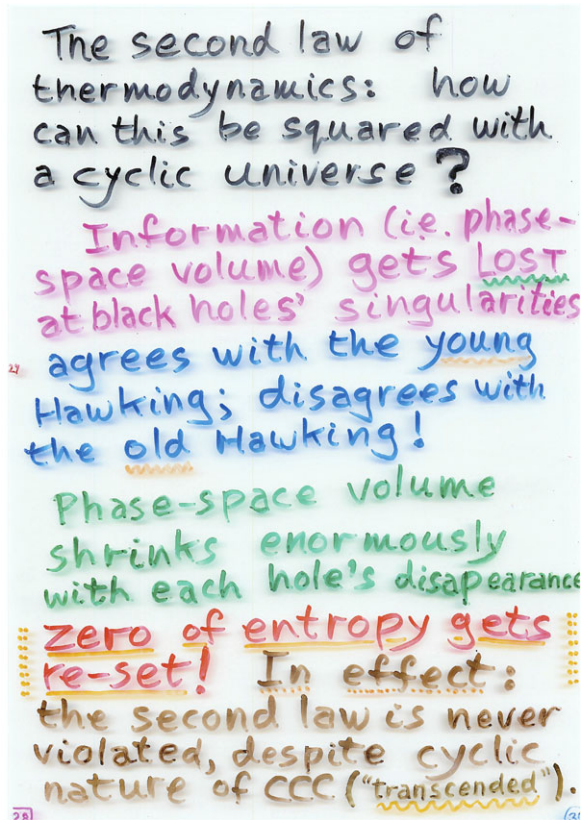 The second law of
thermodynamics: how
can this be squared with
a cyclic universe?
Information (i.e. phase-
space volume) gets LOST
at black holes' singularities
agrees with the young
Hawking; disagrees with
the old Hawking!
Phase-space volume
shrinks enormously
with each hole's disapearance
zero of entropy gets
re-set! In effect:
the second law is never
violated, despite cyclic
nature of CCC ("transcended").
29